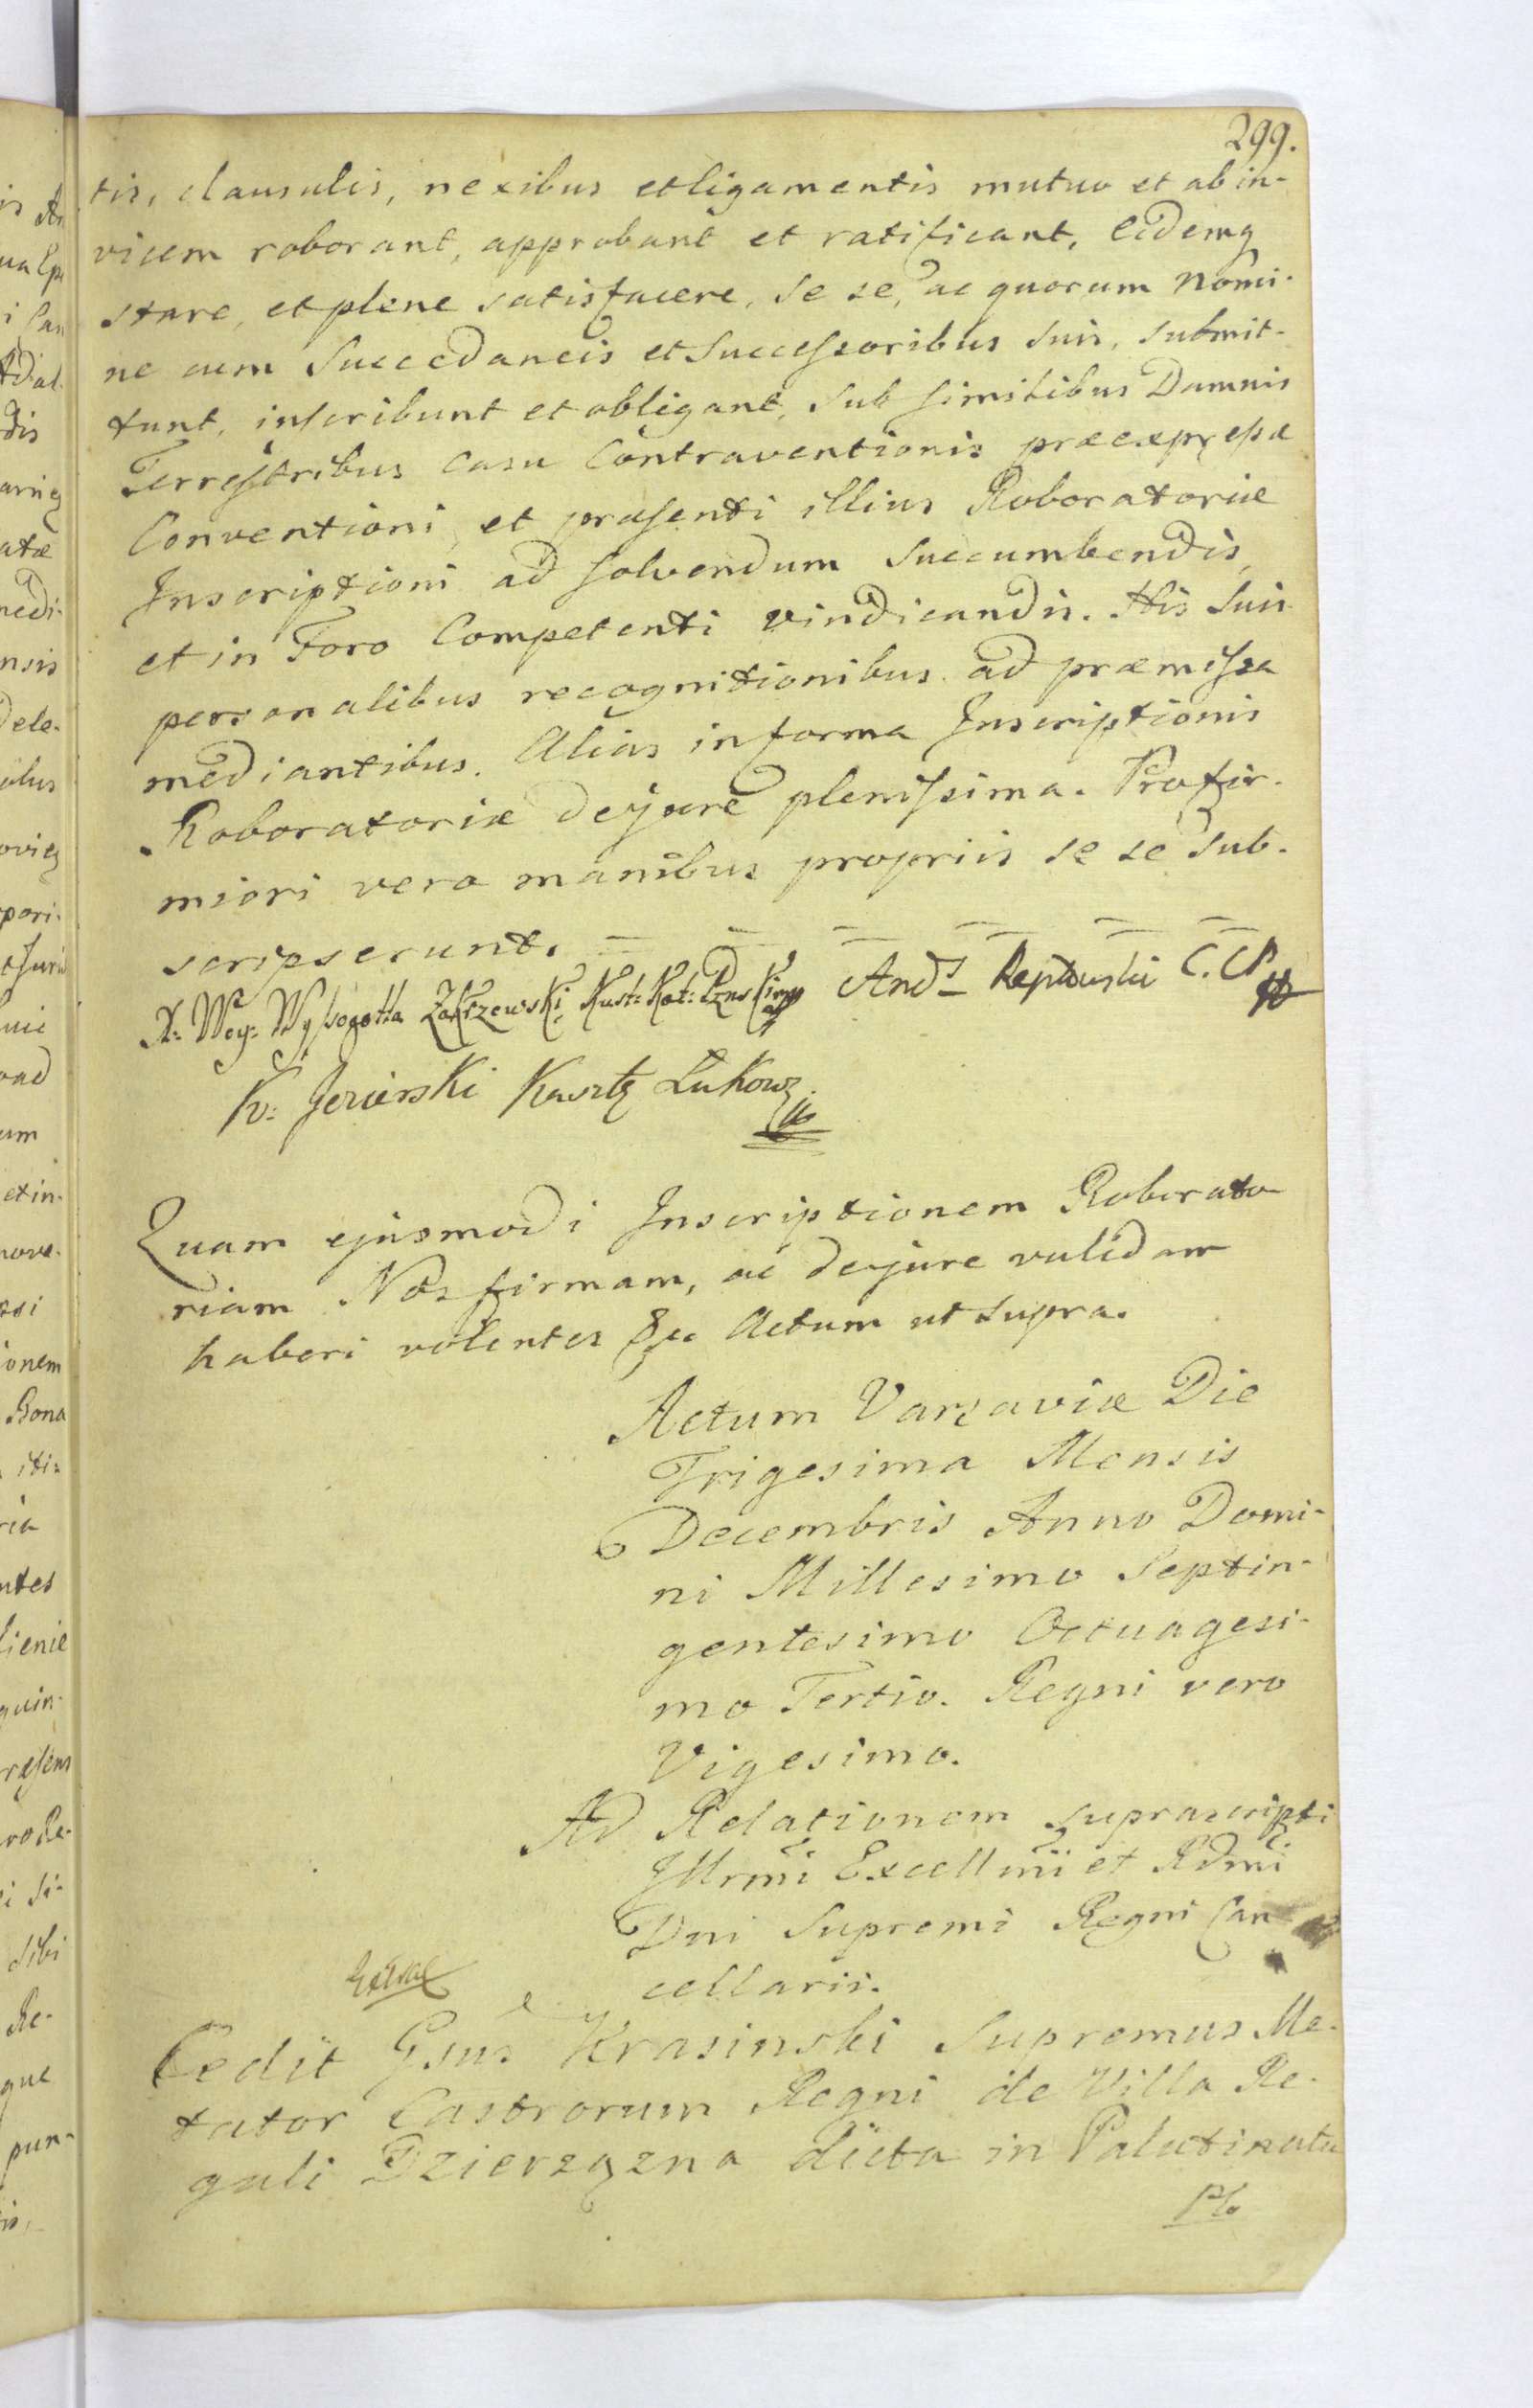 299.
tis, clausulis, nexibus et ligamentis mutuo et ab in-
vicem roborant, approbant et ratificant, Eidemq
stare, et plene satisfacere, se se, ac quorum Nomi-
ne cum Succedaneis et Successoribus suis, submit-
tunt, inscribunt et obligant, sub similibus Damnis
Terrestribus casu Contraventionis præexpressæ
Conventioni, et præsenti illius Roboratoriæ
Inscriptioni ad solvendum succumbendis,
et in Foro Competenti vindicandis. His suis
personalibus recognitionibus ad præmissa
mediantibus. Alias in forma Inscriptionis
Roboratoriæ de jure plenissima. Pro fir-
miori vero manibus propriis se se sub-
scripserunt.
X: Woy: Wyssogotta Zakrzewski Kust: Kat: Pzns Kimp Andr Reptowski C. CP
K: Jezierski Kaszt Łukows
Quam ejusmodi Inscriptionem Roborato
riam Nos firmam, ac de jure validam
haberi volentes &c Actum ut supra.
Actum Varsaviæ Die
Trigesima Mensis
Decembris Anno Domi-
ni Millesimo Septin-
gentesimo Octuagesi-
mo Tertio. Regni vero
Vigesimo.
Ad Relationem suprascripti
Illrmi Excellmi et Rdmi
Dni Supremi Regni Can
cellarii.
Cedit Gsus Krasinski Supremus Me-
tator Castrorum Regni de Villa Re-
gali Dzierzązna dicta in Palatinatu
Plo